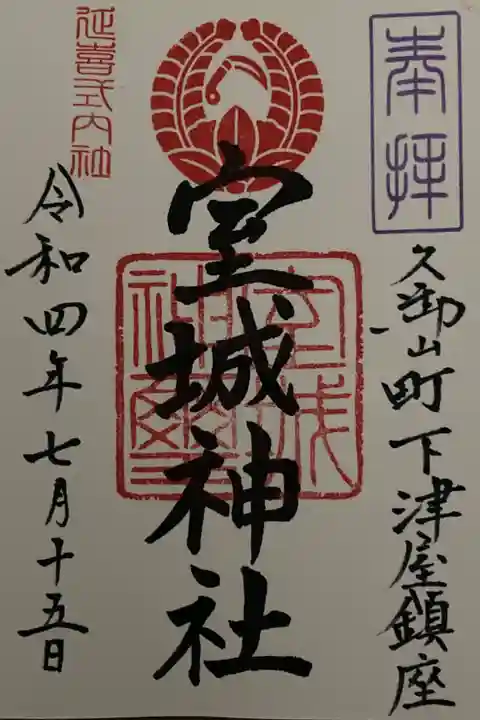 奉拝
久御山町下津屋鎮座
室城神社
延喜式内社
令和四年七月十五日